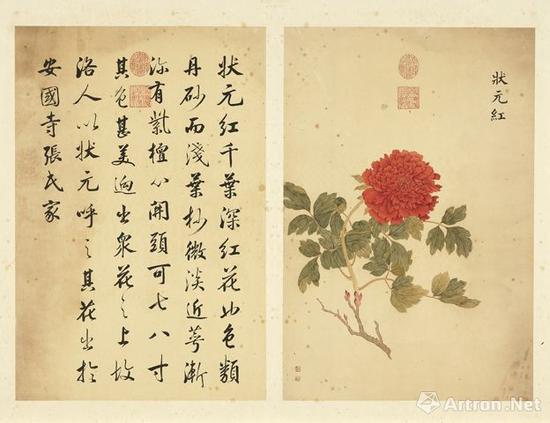 狀元紅
狀元紅千葉深紅花也色類
丹砂而淺葉杪微淡近萼漸
深有紫檀心開頭可七八寸
其色甚美迥出衆花之上故
洛人以狀元呼之其花出於
安國寺張氏家
Artron.Net